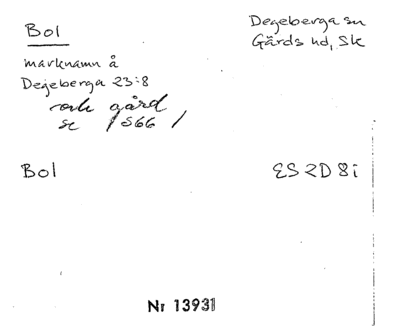 Bol
Degeberga sn
Gärds hd, Sk
marknamn å
Degeberga 23:8
och gård
se 1566 /
Bol
ES 2D 8i
Nr 13931